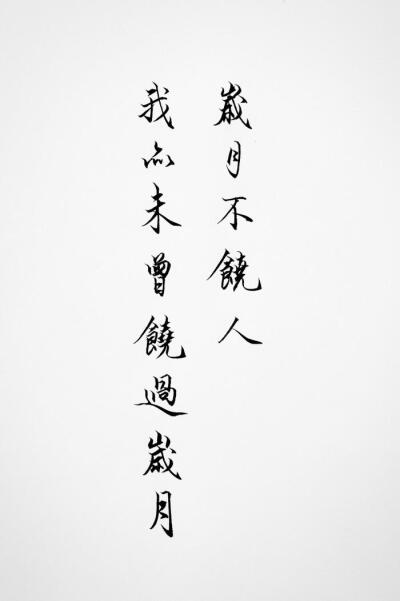 歲月不饒人
我亦未曾饒過歲月